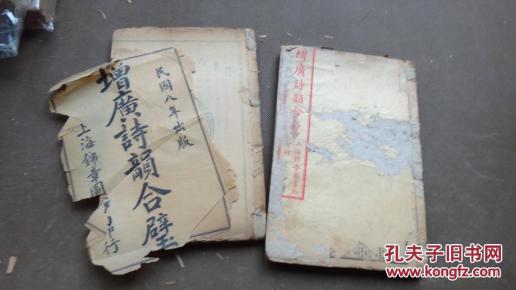 民國八年出版
增廣詩韻合璧
上海錦章圖
印行
增廣詩韻合
上海錦章圖書
孔夫子旧书网